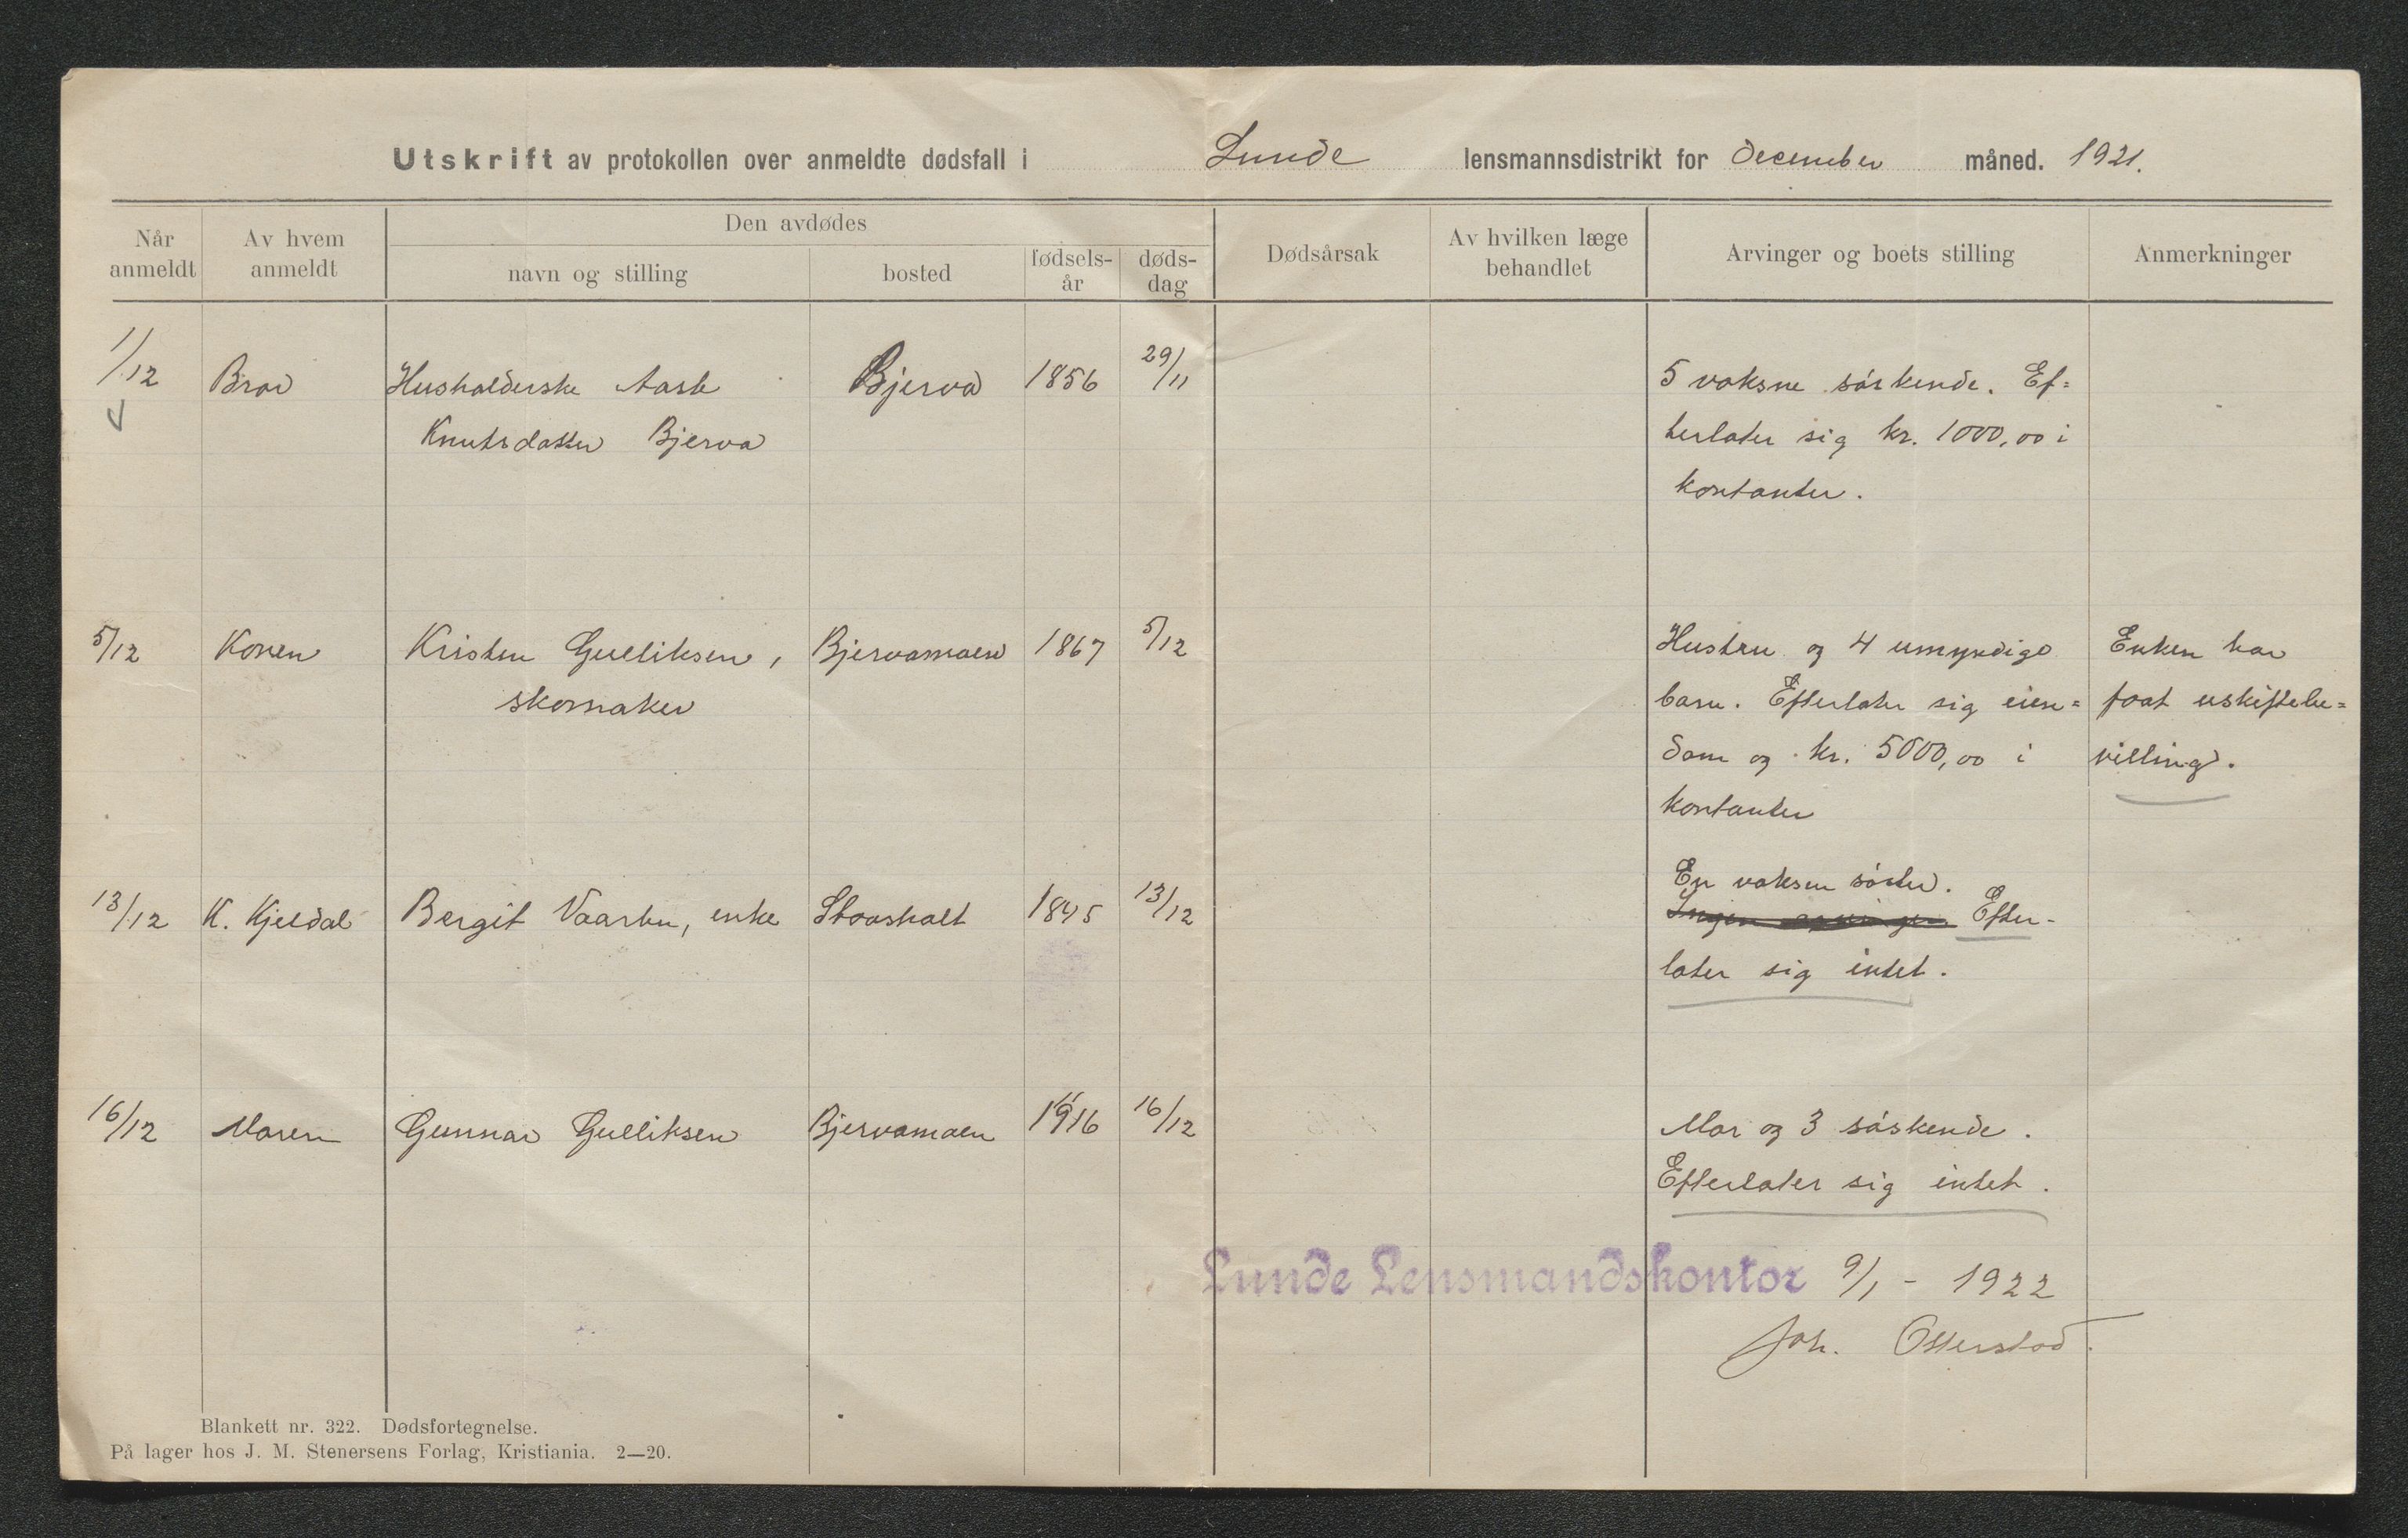 Utskrift av protokollen over anmeldte dødsfall i Lunde lensmannsdistrikt for December måned. 1921.
Når anmeldt
Av hvem anmeldt
Den avdødes
navn og stilling
bosted
fødsels-år
døds-dag
Dødsårsak
Av hvilken læge behandlet
Arvinger og boets stilling
Anmerkninger
1/12 Bror Husholderske Aasle Bjerva 1856 29/11 5 voksne søskende. Ef=
Knutsdatter Bjerva terlater sig kr. 1000,00 i
kontanter.
5/12 Konen Kristen Gulliksen, Bjervamoen 1867 5/12 Hustru og 4 umyndige Enken har
skomaker barn. Efterlater sig eien= faat uskiftebe=
dom og kr. 5000,00 i villing.
kontanter
En voksen søster.
13/12 K. Kjeldal Bergit Vaarbu, enke 1845 13/12 Ingen Efter-
later sig intet.
16/12 Moren Gunnar Gulliksen Bjervamoen 1916 16/12 Mor og 3 søskende.
Efterlater sig intet.
Lunde Lensmandskontor 9/1 - 1922
Joh. Otterstad.
Blankett nr. 322. Dødsfortegnelse.
På lager hos J. M. Stenersens Forlag, Kristiania. 2—20.